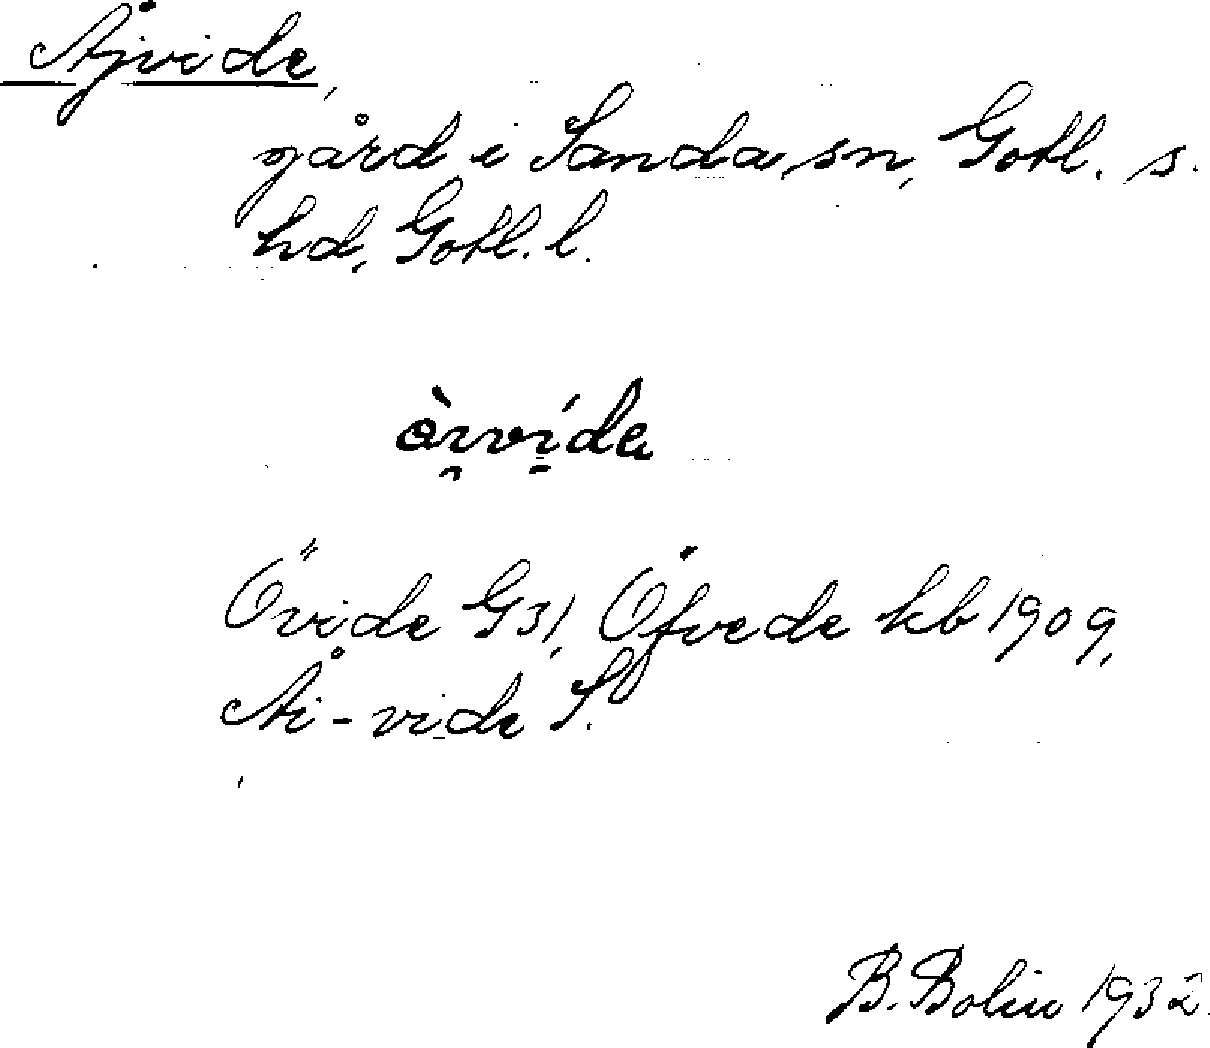 Åjvide,
gård i Sanda sn, Gotl. s.
hd, Gotl. l.
Övide G31, Öfvede kb 1909,
Åi-vide S.
B. Bolin 1932.